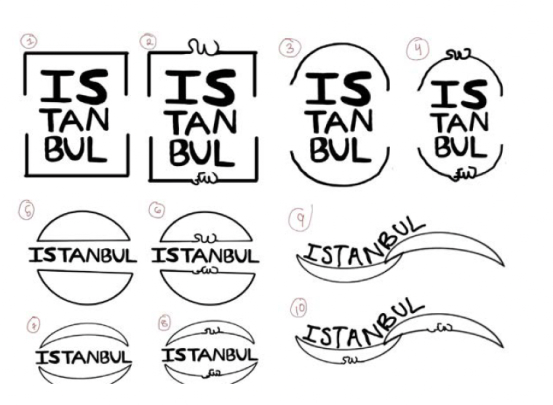 1
IS
TAN
BUL
2
IS
TAN
BUL
3
IS
TAN
BUL
4
IS
TAN
BUL
5
ISTANBUL
6
ISTANBUL
9
ISTANBUL
ISTANBUL
8
ISTANBUL
10
ISTANBUL